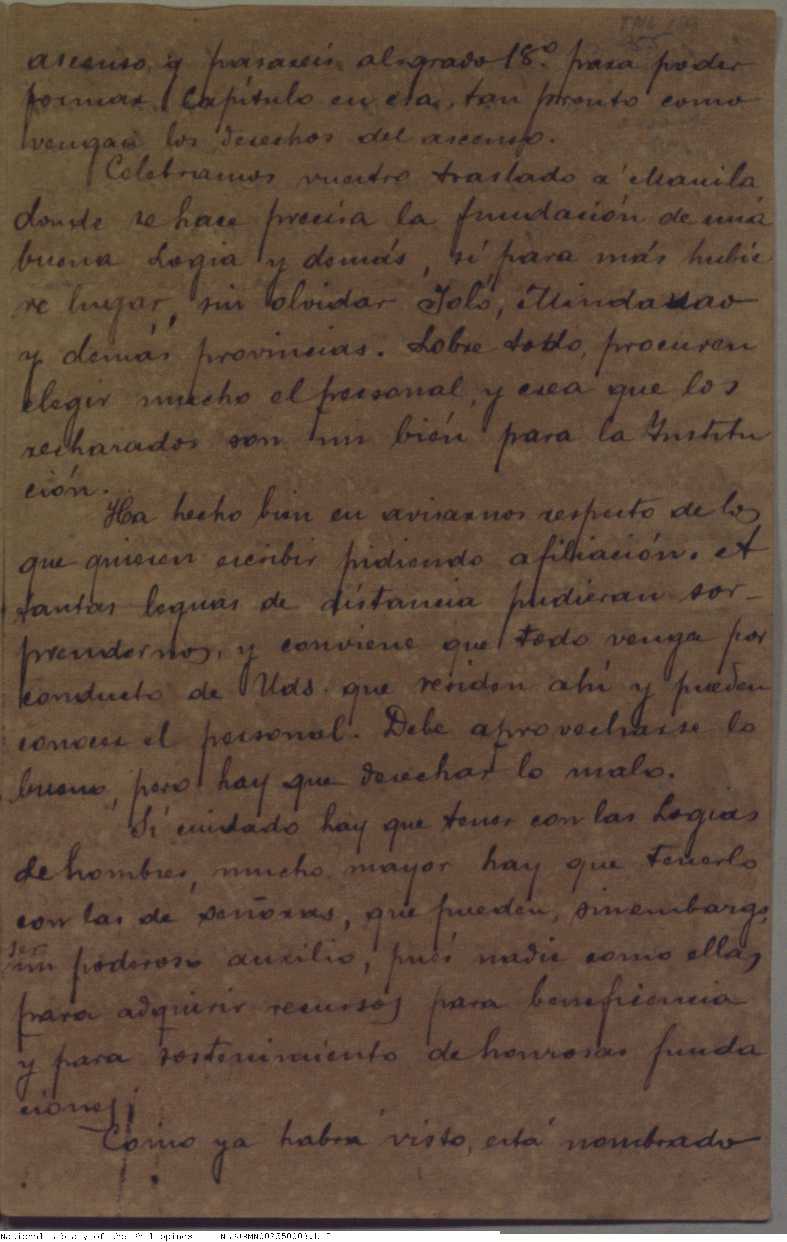 ascenso, y pasareis al grado 18.º para poder
formar Capítulo en esa, tan pronto como
vengan los derechos del ascenso.
Celebramos vuestro traslado a Manila
donde se hace precisa la fundación de una
buena Logia y demás, si para más hubie
re lugar, sin olvidar Joló, Mindanao
y demás provincias. Sobre todo, procuren
elegir mucho el personal, y crea que los
recharados son un bién para la Institu
ción.
Ha hecho bien en avisarnos respecto de los
que quieren escribir pidiendo afiliación. A
tantas leguas de distancia pudieran sor-
prendernos, y conviene que todo venga por
conducto de Uds. que residen ahí y pueden
conocer el personal. Debe aprovecharse lo
bueno, pero hay que desechar lo malo.
Si cuidado hay que tener con las Logias
de hombres, mucho mayor hay que tenerlo
con las de señoras, que pueden, sinembargo,
ser un poderoso auxilio, pues nadie como ellas
para adquirir recursos para beneficencia
y para sostenimiento de honrosas funda
ciones;
Como ya habrá visto, está nombrado
National Library of the Philippines